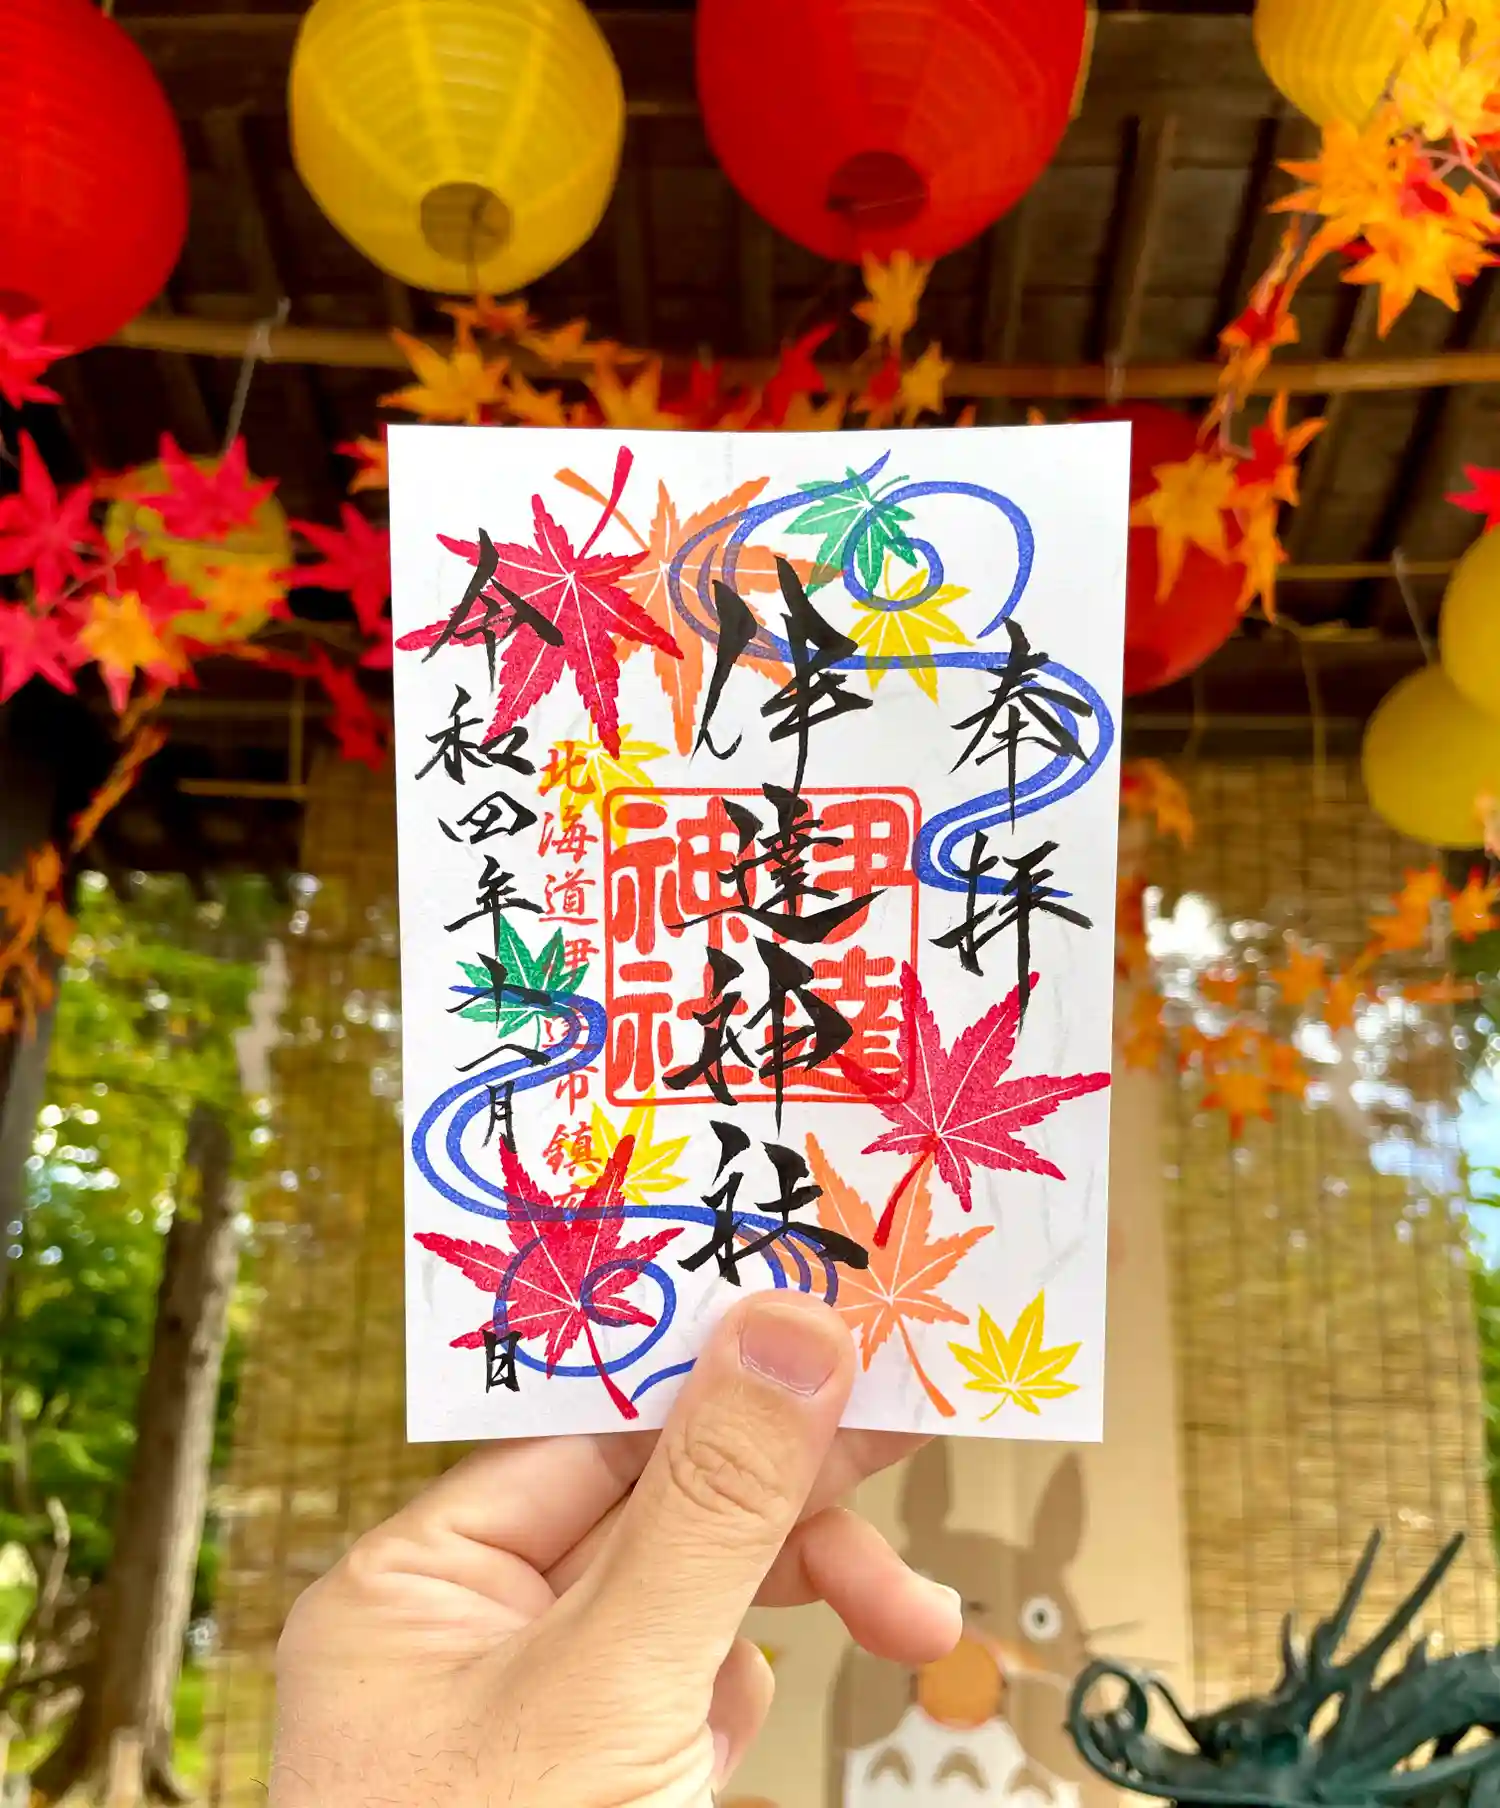 奉拝
伊達神社
伊達
神社
北海道伊達市鎮座
令和四年十月 日